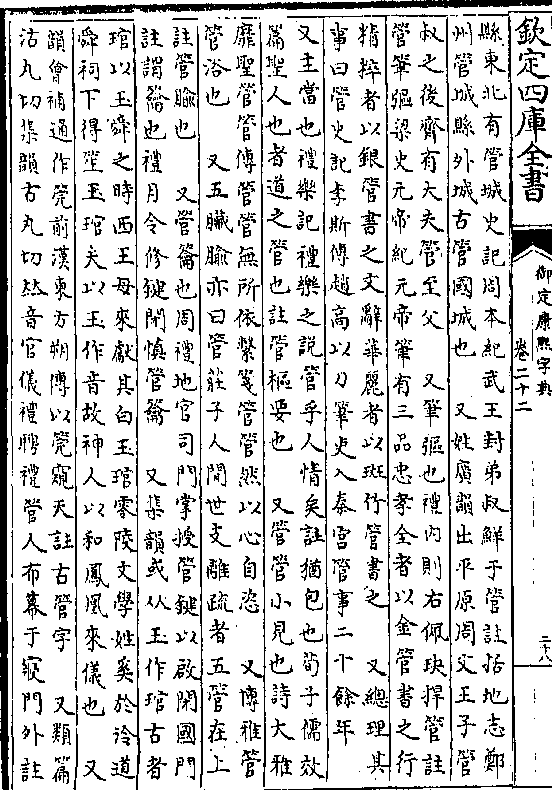 欽定四庫全書
御定康熙字典
卷二十二
二十八
縣東北有管城史記周本紀武王封弟叔鮮于管註括地志鄭
州管城縣外城古管國城也　又姓廣韻出平原周文王子管
叔之後齊有大夫管至父　又筆彄也禮內則右佩玦捍管註
管筆彄梁史元帝紀元帝筆有三品忠孝全者以金管書之行
精粹者以銀管書之文辭華麗者以斑竹管書之　又總理其
事曰管史記李斯傳趙高以刀筆吏入秦宮管事二十餘年
又主當也禮樂記禮樂之說管乎人情矣註猶包也荀子儒效
篇聖人也者道之管也註管樞要也　又管管小見也詩大雅
靡聖管管傳管管無所依繫箋管管然以心自恣　又博雅管
管浴也　又五臟腧亦曰管莊子人間世支離疏者五管在上
註管腧也　又管籥也周禮地官司門掌授管鍵以啟閉國門
註謂籥也禮月令修鍵閉慎管籥　又集韻或从玉作琯古者
琯以玉舜之時西王母來獻其白玉琯零陵文學姓奚於泠道
舜祠下得笙玉琯夫以玉作音故神人以和鳳凰來儀也　又
韻會補通作筦前漢東方朔傳以筦窺天註古管字　又類篇
沽丸切集韻古丸切𠀤音官儀禮聘禮管人布幕于寢門外註